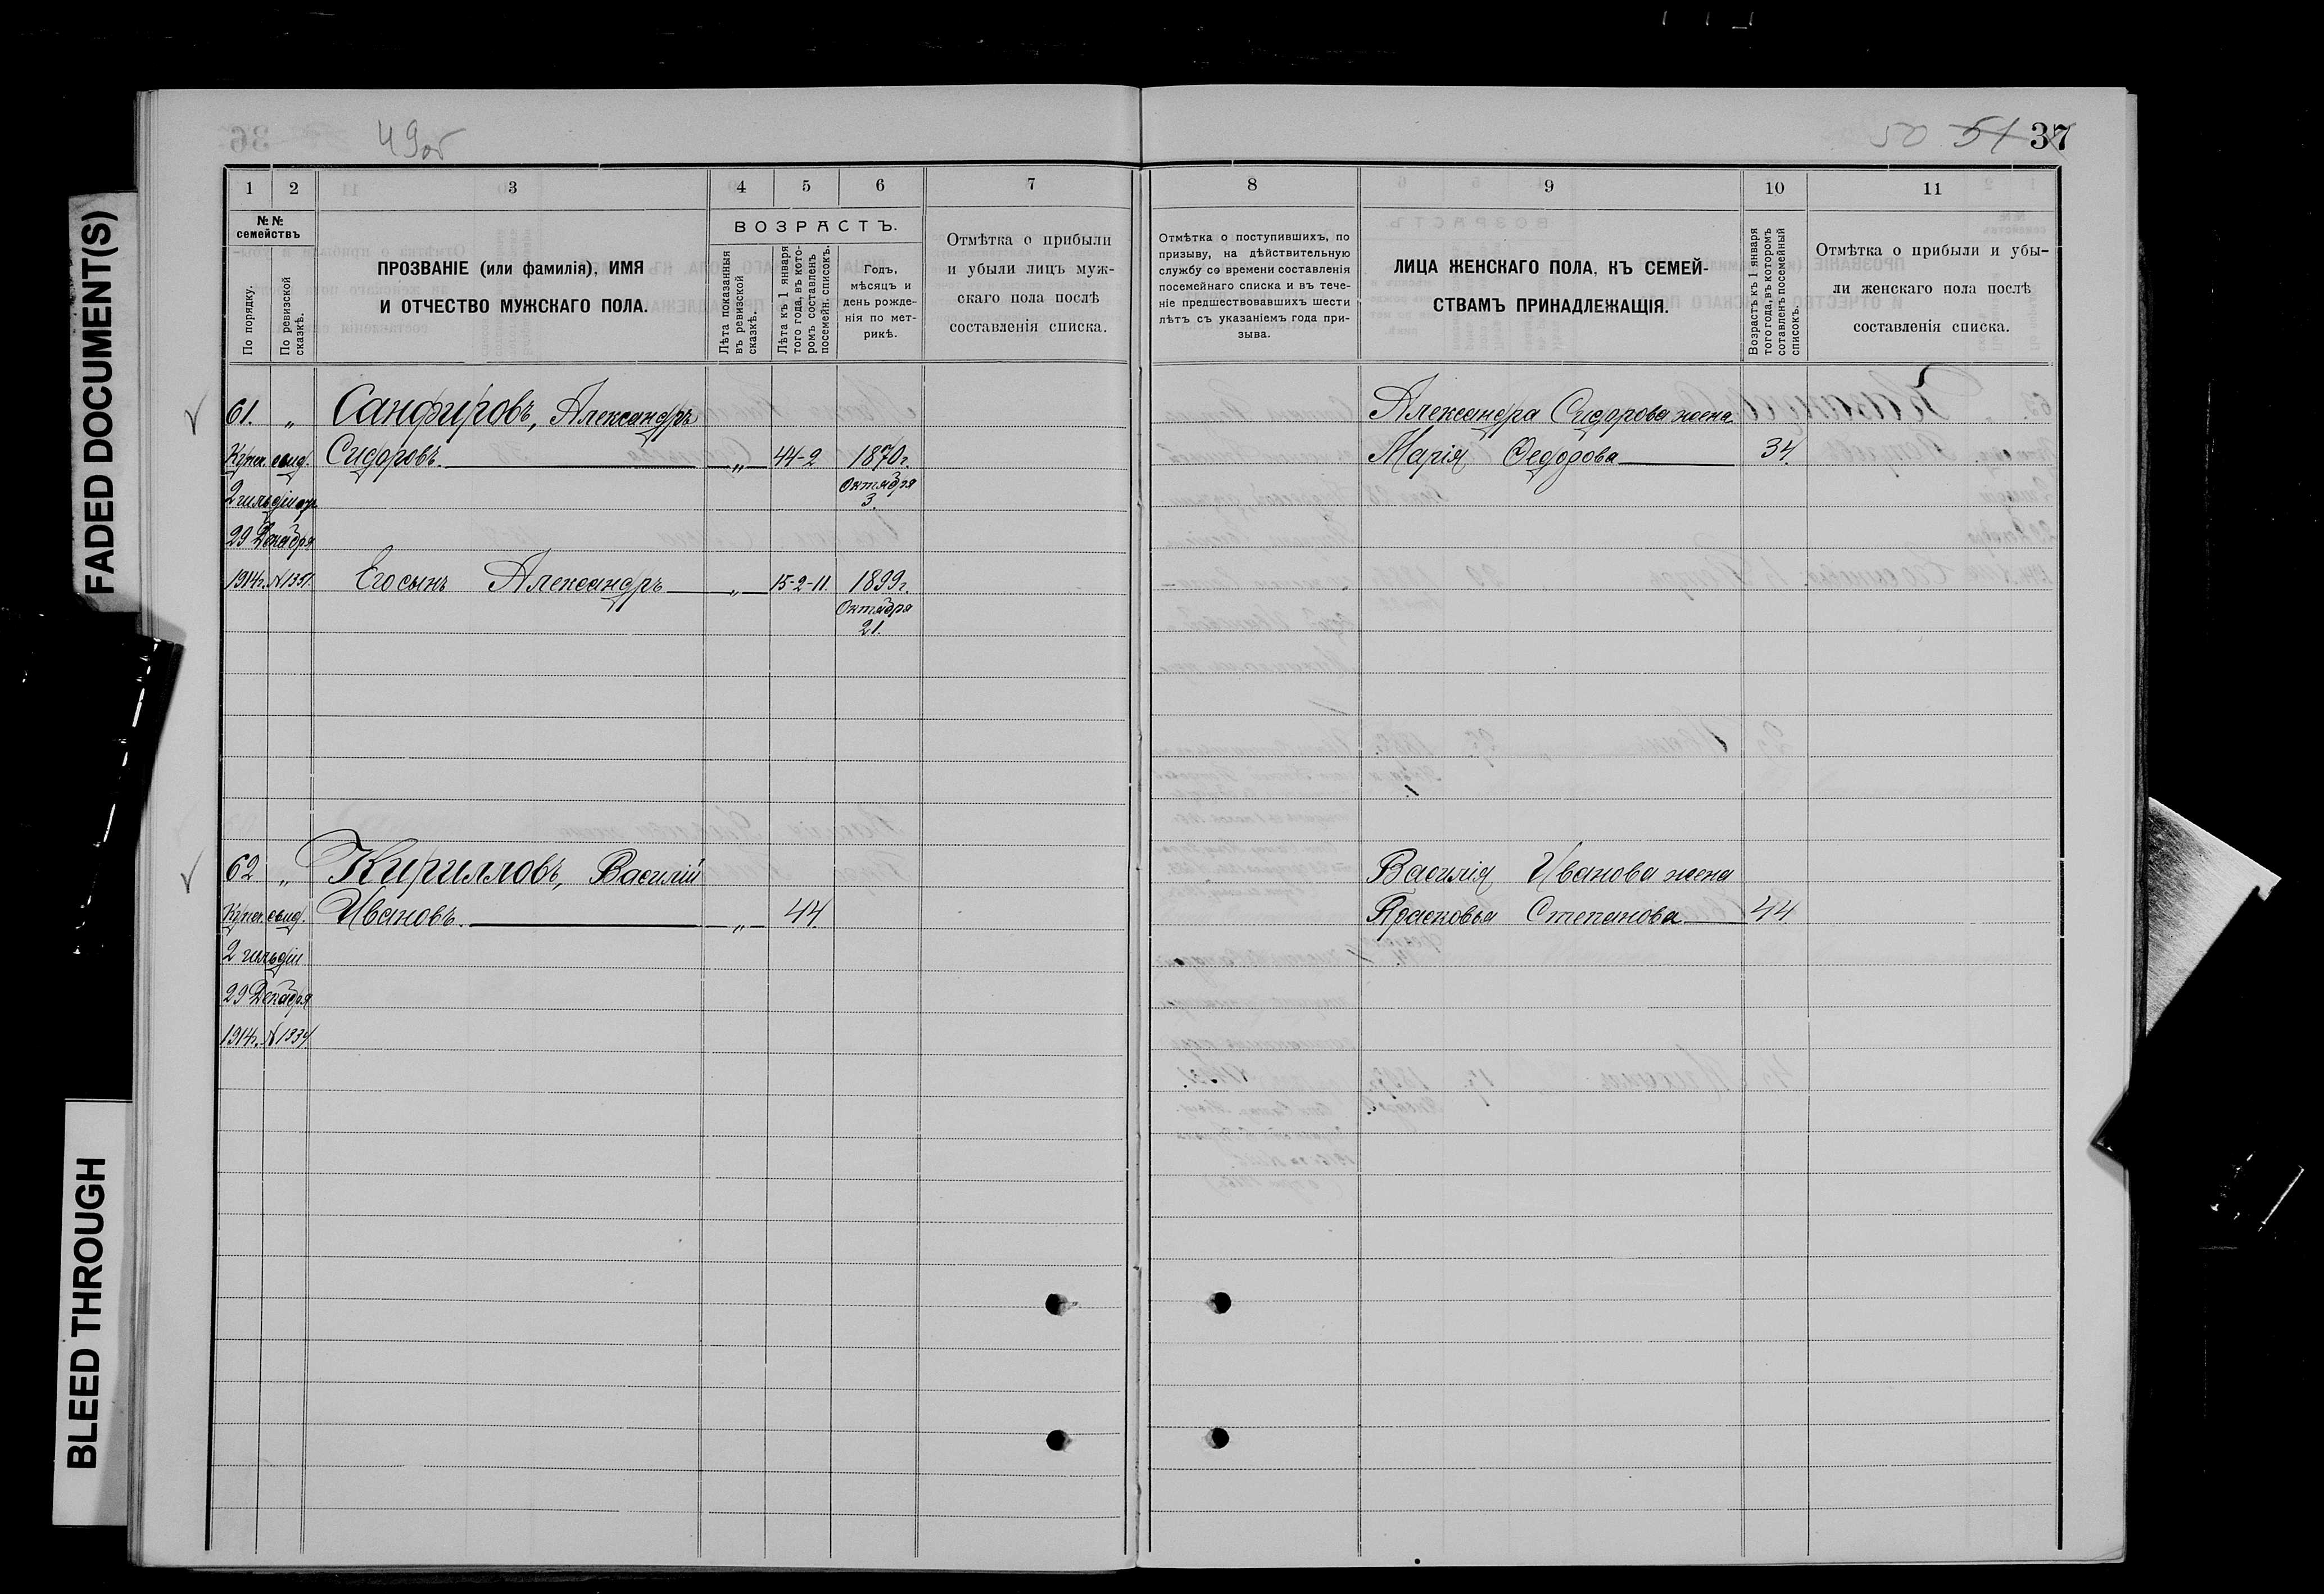 FADED DOCUMENT(S)
BLEED THROUGH
49об
50 51 37
1 2 3 4 5 6 7
№№ семействъ
По порядку.
По ревизской сказкѣ.
ПРОЗВАНІЕ (или фамилія), ИМЯ
И ОТЧЕСТВО МУЖСКАГО ПОЛА.
ВОЗРАСТЪ.
Лѣта показанныя
въ ревизской
сказкѣ.
Лѣта къ 1 января
того года, въ кото-
ромъ составленъ
посемейн. списокъ.
Годъ,
мѣсяцъ и
день рожде-
нія по мет-
рикѣ.
Отмѣтка о прибыли
и убыли лицъ муж-
скаго пола послѣ
составленія списка.
8 9 10 11
Отмѣтка о поступившихъ, по
призыву, на дѣйствительную
службу со времени составленія
посемейнаго списка и въ тече-
ніе предшествовавшихъ шести
лѣтъ съ указаніемъ года при-
зыва.
ЛИЦА ЖЕНСКАГО ПОЛА, КЪ СЕМЕЙ-
СТВАМЪ ПРИНАДЛЕЖАЩІЯ.
Возрастъ къ 1 января
того года, въ которомъ
сотавленъ посемейный
списокъ.
Отмѣтка о прибыли и убы-
ли женскаго пола послѣ
составленія списка.
61. „ Санфировъ, Александръ
Купеч. свид. Сидоровъ. „ 44-2 1870 г.
2 гильдіи
Октября
3.
29 Декабря
1914 г. № 1351. Его сынъ Александръ „ 15-2-11. 1899 г.
Октября
21.
Александра Сидорова жена
Марія Ѳедорова 34.
62 „ Кирилловъ, Василій
Купеч. свид. Ивановъ. „ 44.
2 гильдіи
29 Декабря
1914 г. № 1334
Василія Иванова жена
Прасковья Степанова 44